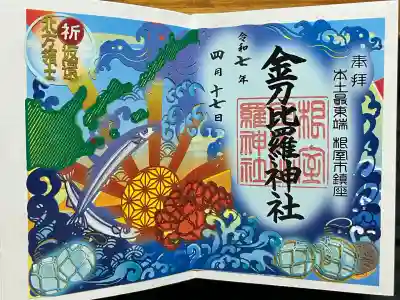 奉拝
本土最東端 根室市鎮座
金刀比羅神社
根室
羅神社
令和七年
四月十七日
祈
返還
北方領土